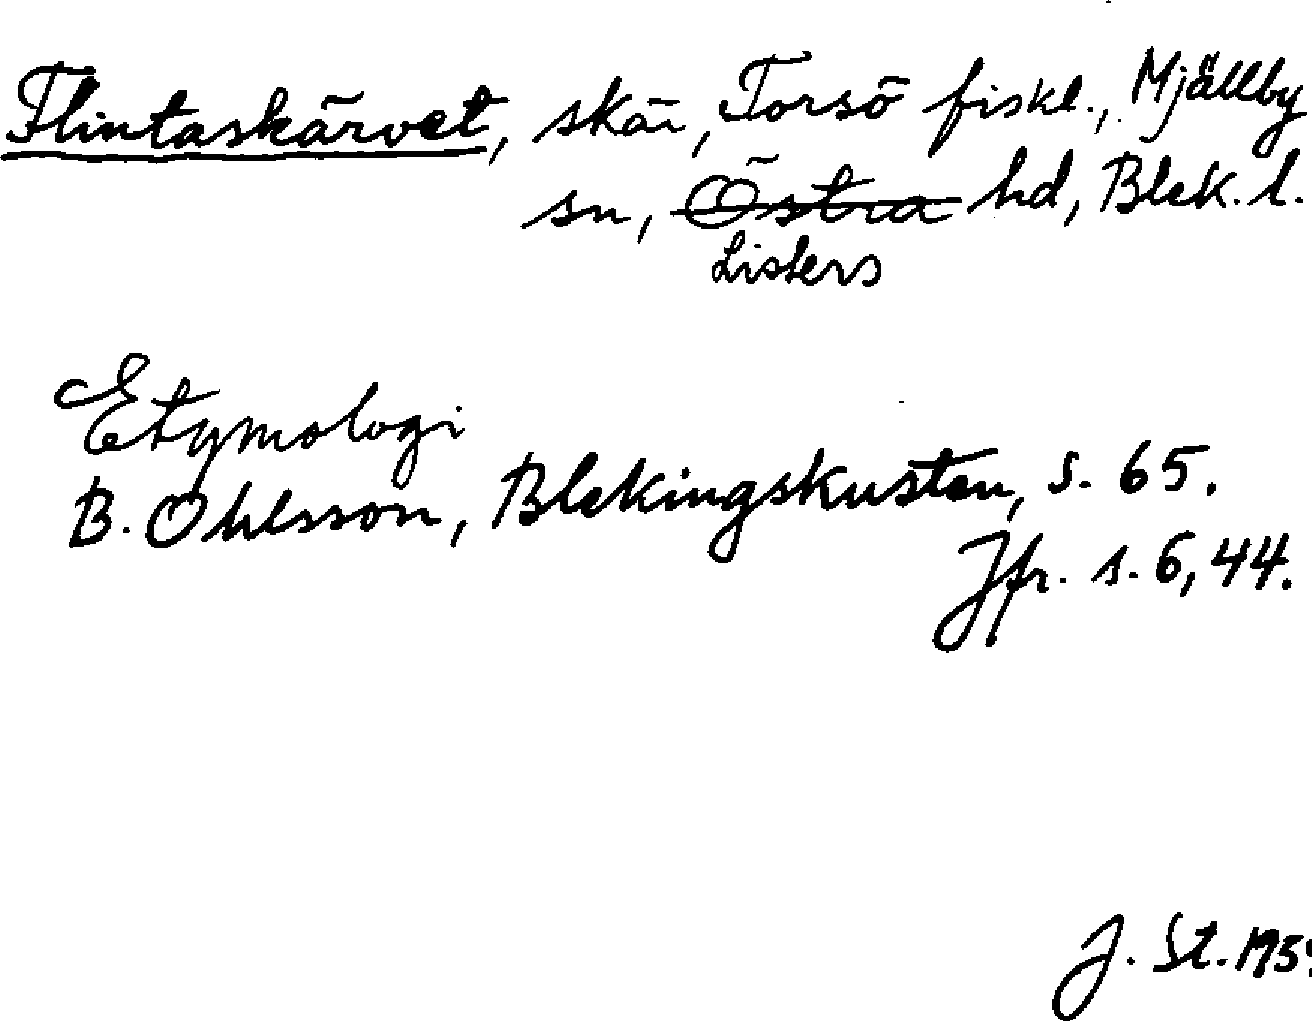 Flintaskärvet, skär, Torsö fiskl., Mjällby
sn, Östra hd, Blek. l.
Listers
Etymologi
B. Ohlsson, Blekingskusten, s. 65.
Jfr. s. 6, 44.
J. St.